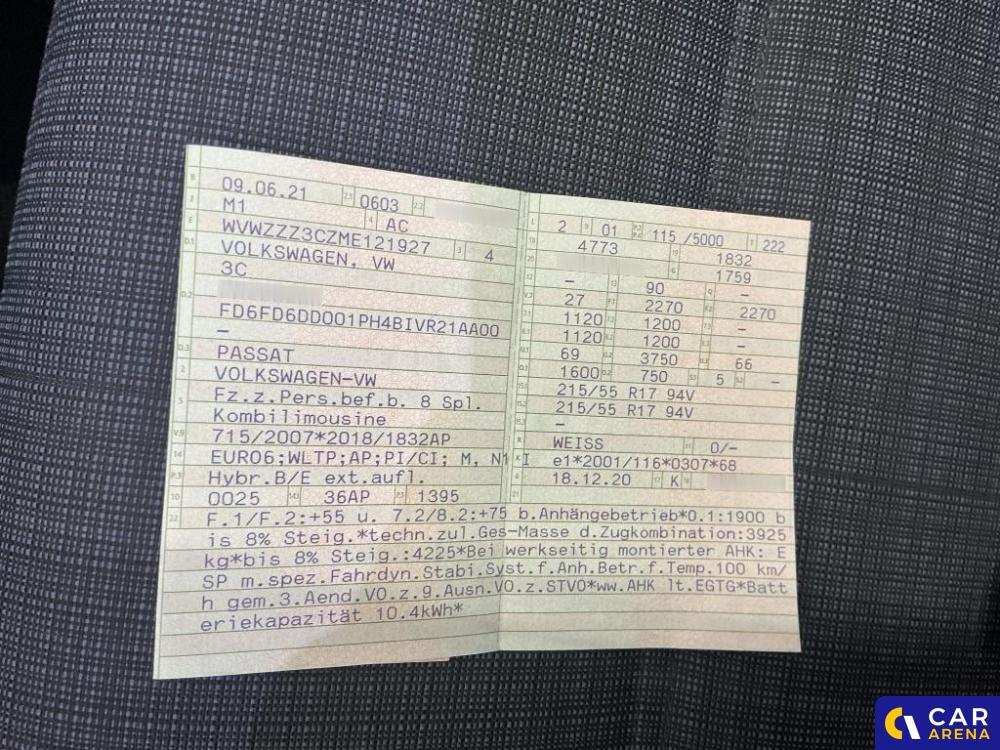 09.06.21 2.1 0603 2.2
M1 AC
WVWZZZ3CZME121927 3 4
VOLKSWAGEN, VW
3C
FD6FD6DD001PH4BIVR21AA00
–
PASSAT
VOLKSWAGEN-VW
Fz.z.Pers.bef.b. 8 Spl.
Kombilimousine
715/2007*2018/1832AP
EURO6;WLTP;AP;PI/CI; M, N1 I
Hybr.B/E ext.aufl.
0025 36AP 1395
2 01 115 /5000 222
4773 1832
1759
– 90 –
27 2270 2270
1120 1200 –
1120 1200 –
69 3750 66
1600 750 5 –
215/55 R17 94V
215/55 R17 94V
–
WEISS 0/–
e1*2001/116*0307*68
18.12.20 K
F.1/F.2:+55 u. 7.2/8.2:+75 b.Anhängebetrieb*0.1:1900 b
is 8% Steig.*techn.zul.Ges-Masse d.Zugkombination:3925
kg*bis 8% Steig.:4225*Bei werkseitig montierter AHK: E
SP m.spez.Fahrdyn.Stabi.Syst.f.Anh.Betr.f.Temp.100 km/
h gem.3.Aend.VO.z.9.Ausn.VO.z.STVO*ww.AHK lt.EGTG*Batt
eriekapazität 10.4kWh*
CAR
ARENA